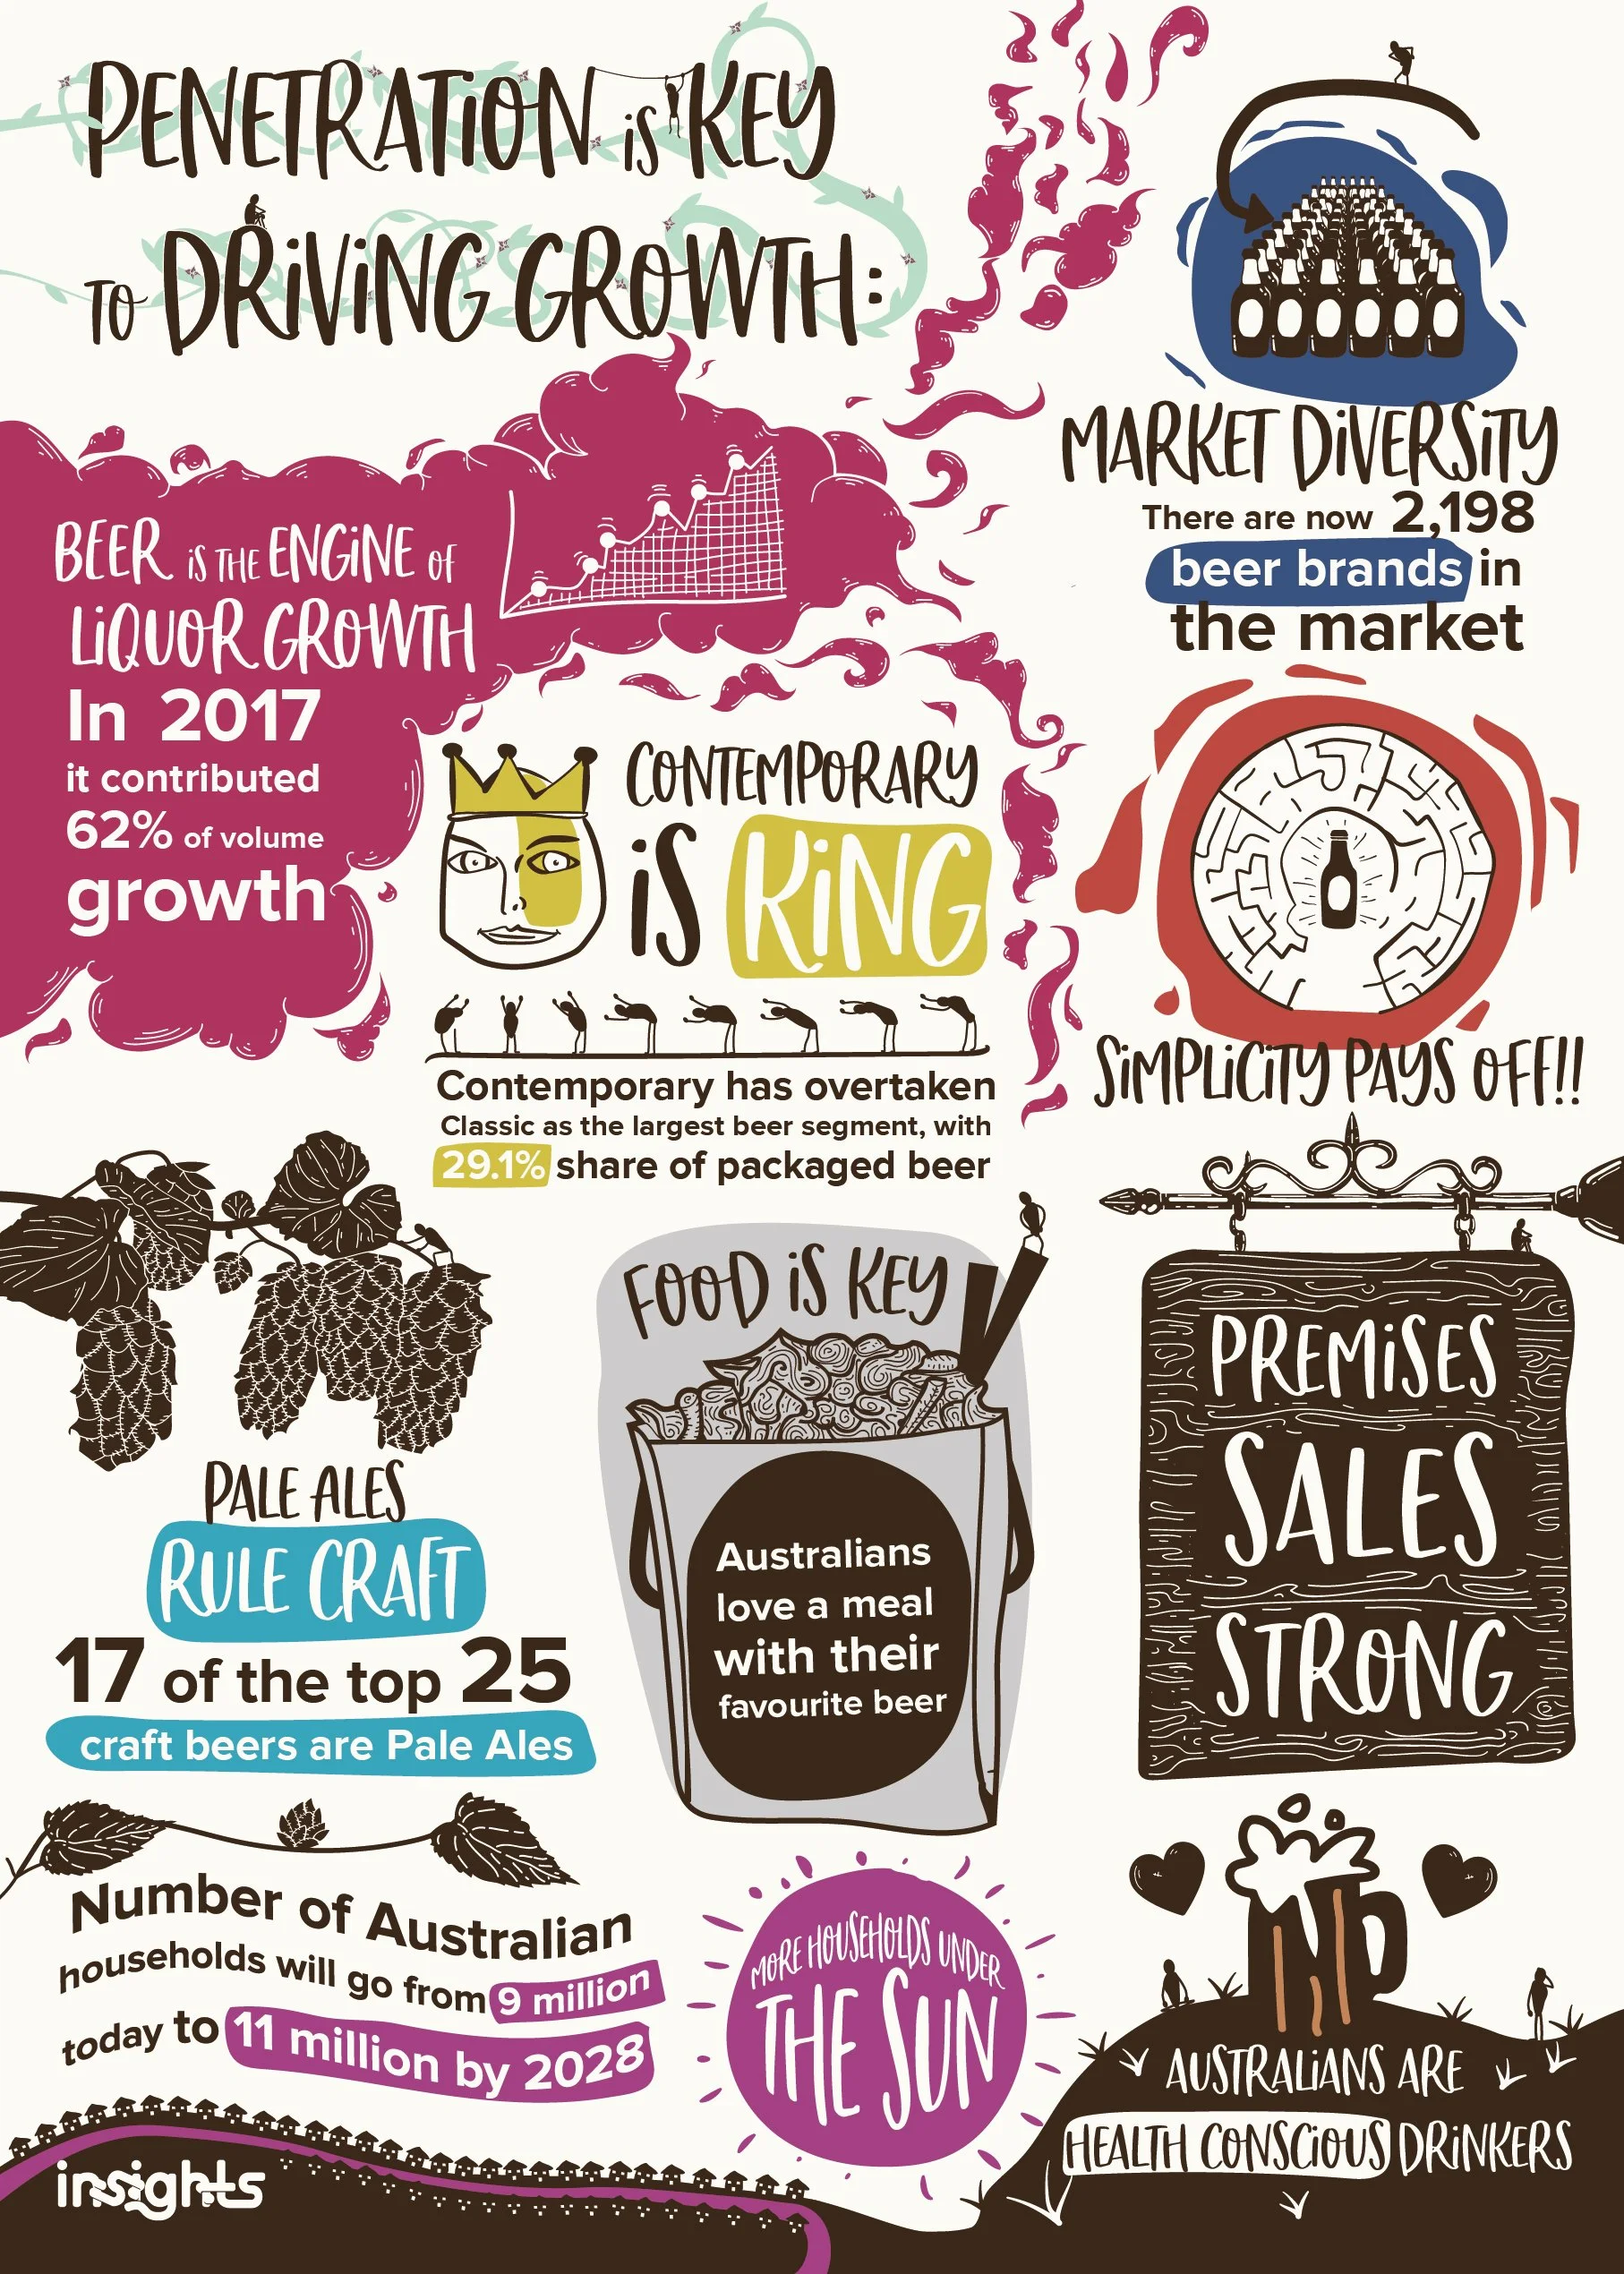 PENETRATION is KEY
TO DRIVING GROWTH:
BEER iS THE ENGINE OF
LIQUOR GROWTH
In 2017
it contributed
62% of volume
growth
MARKET DIVERSITY
There are now 2,198
beer brands in
the market
CONTEMPORARY
iS KING
Contemporary has overtaken
Classic as the largest beer segment, with
29.1% share of packaged beer
SIMPLICITY PAYS OFF!!
PALE ALES
RULE CRAFT
17 of the top 25
craft beers are Pale Ales
FOOD iS KEY
Australians
love a meal
with their
favourite beer
PREMISES
SALES
STRONG
Number of Australian
households will go from 9 million
today to 11 million by 2028
MORE HOUSEHOLDS UNDER
THE SUN
AUSTRALIANS ARE
HEALTH CONSCIOUS DRINKERS
insights